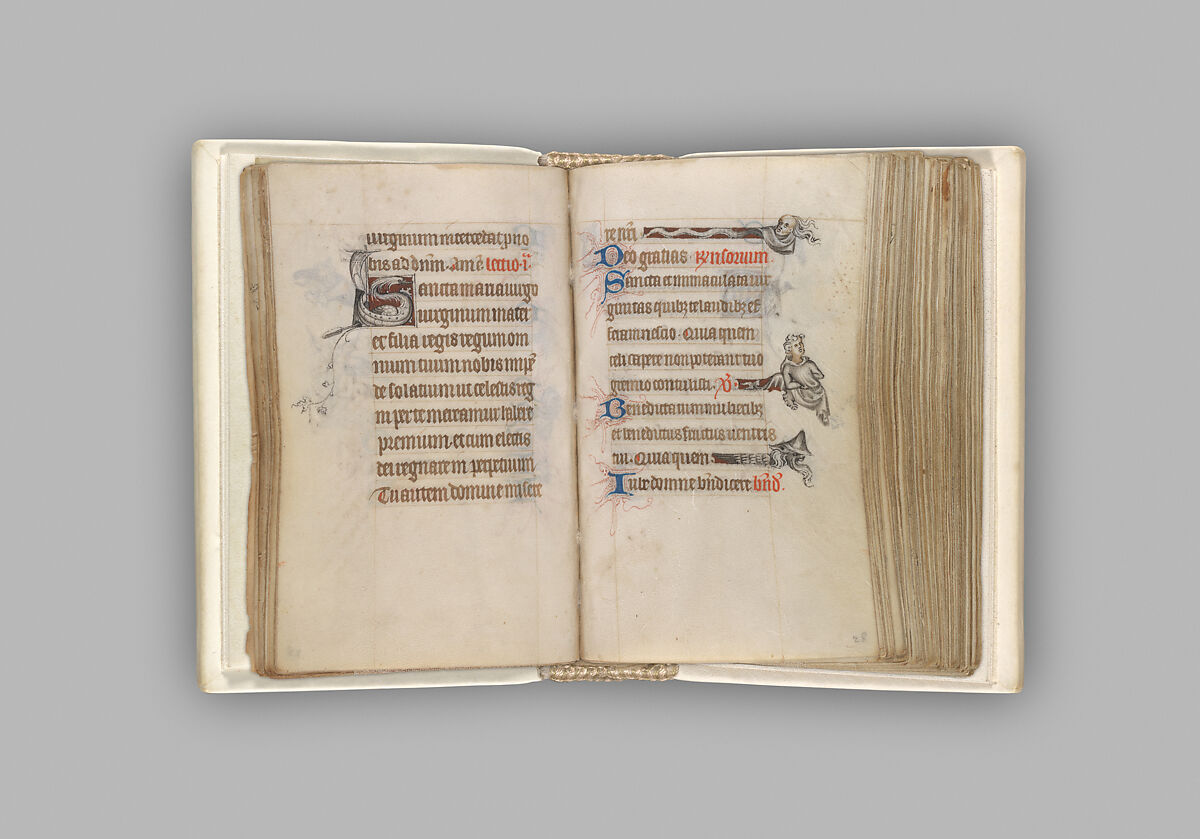 uirginum intercedat p no
bis ad dnm. Ame lectio .i.
Sancta maria uirgo
uirginum mater
et filia regis regum om
nium tuum nobis inpe
de solatium ut celestis reg
ni per te mereamur habere
premium. et cum electis
dei regnare in perpetuum
Tu autem domine misere
re nri
Deo gratias Responsorium
Sancta et inmaculata uir
ginitas quibz te laudibz ef
feram nescio. Quia quem
celi capere non poterant tuo
gremio contulisti. V
Benedicta tu in mulieribz
et benedictus fructus uentris
tui. Quia quem
Iube domne bndicere bnd.
28